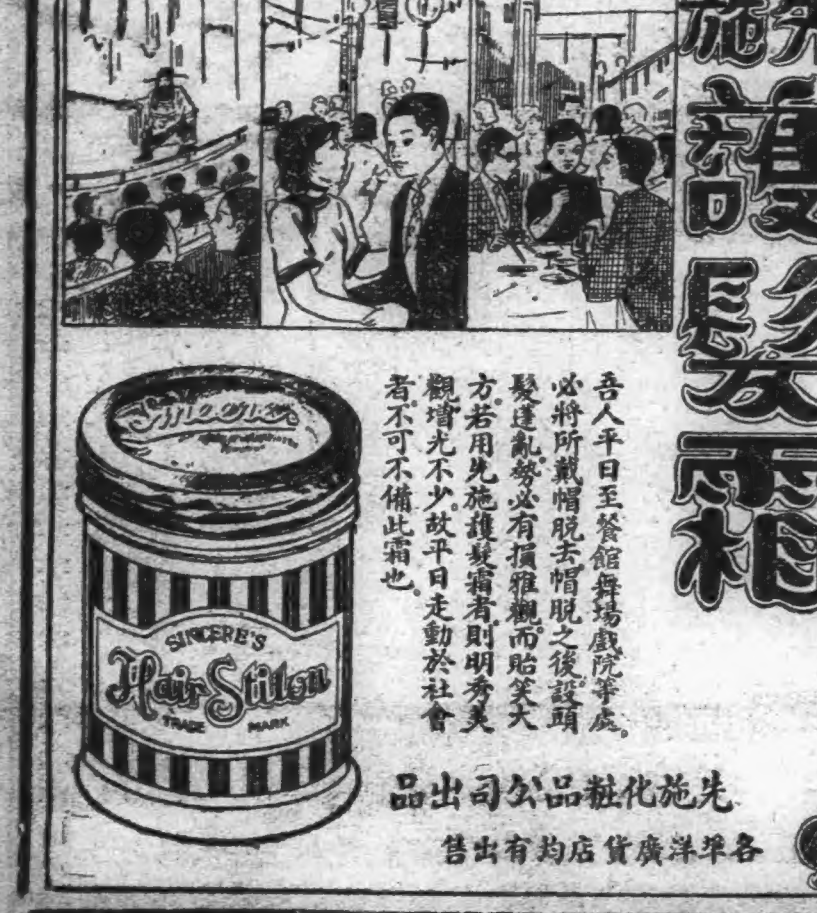 先施
護
髮
霜
吾人平日至餐館舞場戲院等處。
必將所戴帽脱去帽脱之後。設頭
髮蓬亂。勢必有損雅觀。而貽笑大
方。若用先施護髮霜者。則明秀美
觀。增光不少。故平日走動於社會
者。不可不備此霜也。
Sincere
SINCERE'S
Hair Stilon
TRADE MARK
先施化粧品公司出品
各埠洋廣貨店均有出售